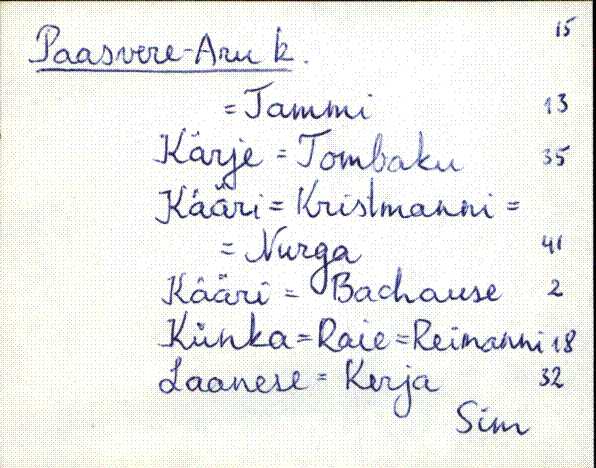 15
Paasvere-Aru k.
= Tammi 13
Kärje = Tombaku 35
Kääri = Kristmanni =
= Nurga 41
Kääri = Bachause 2
Künka = Raie = Reimanni 18
Laanese = Kerja 32
Sim